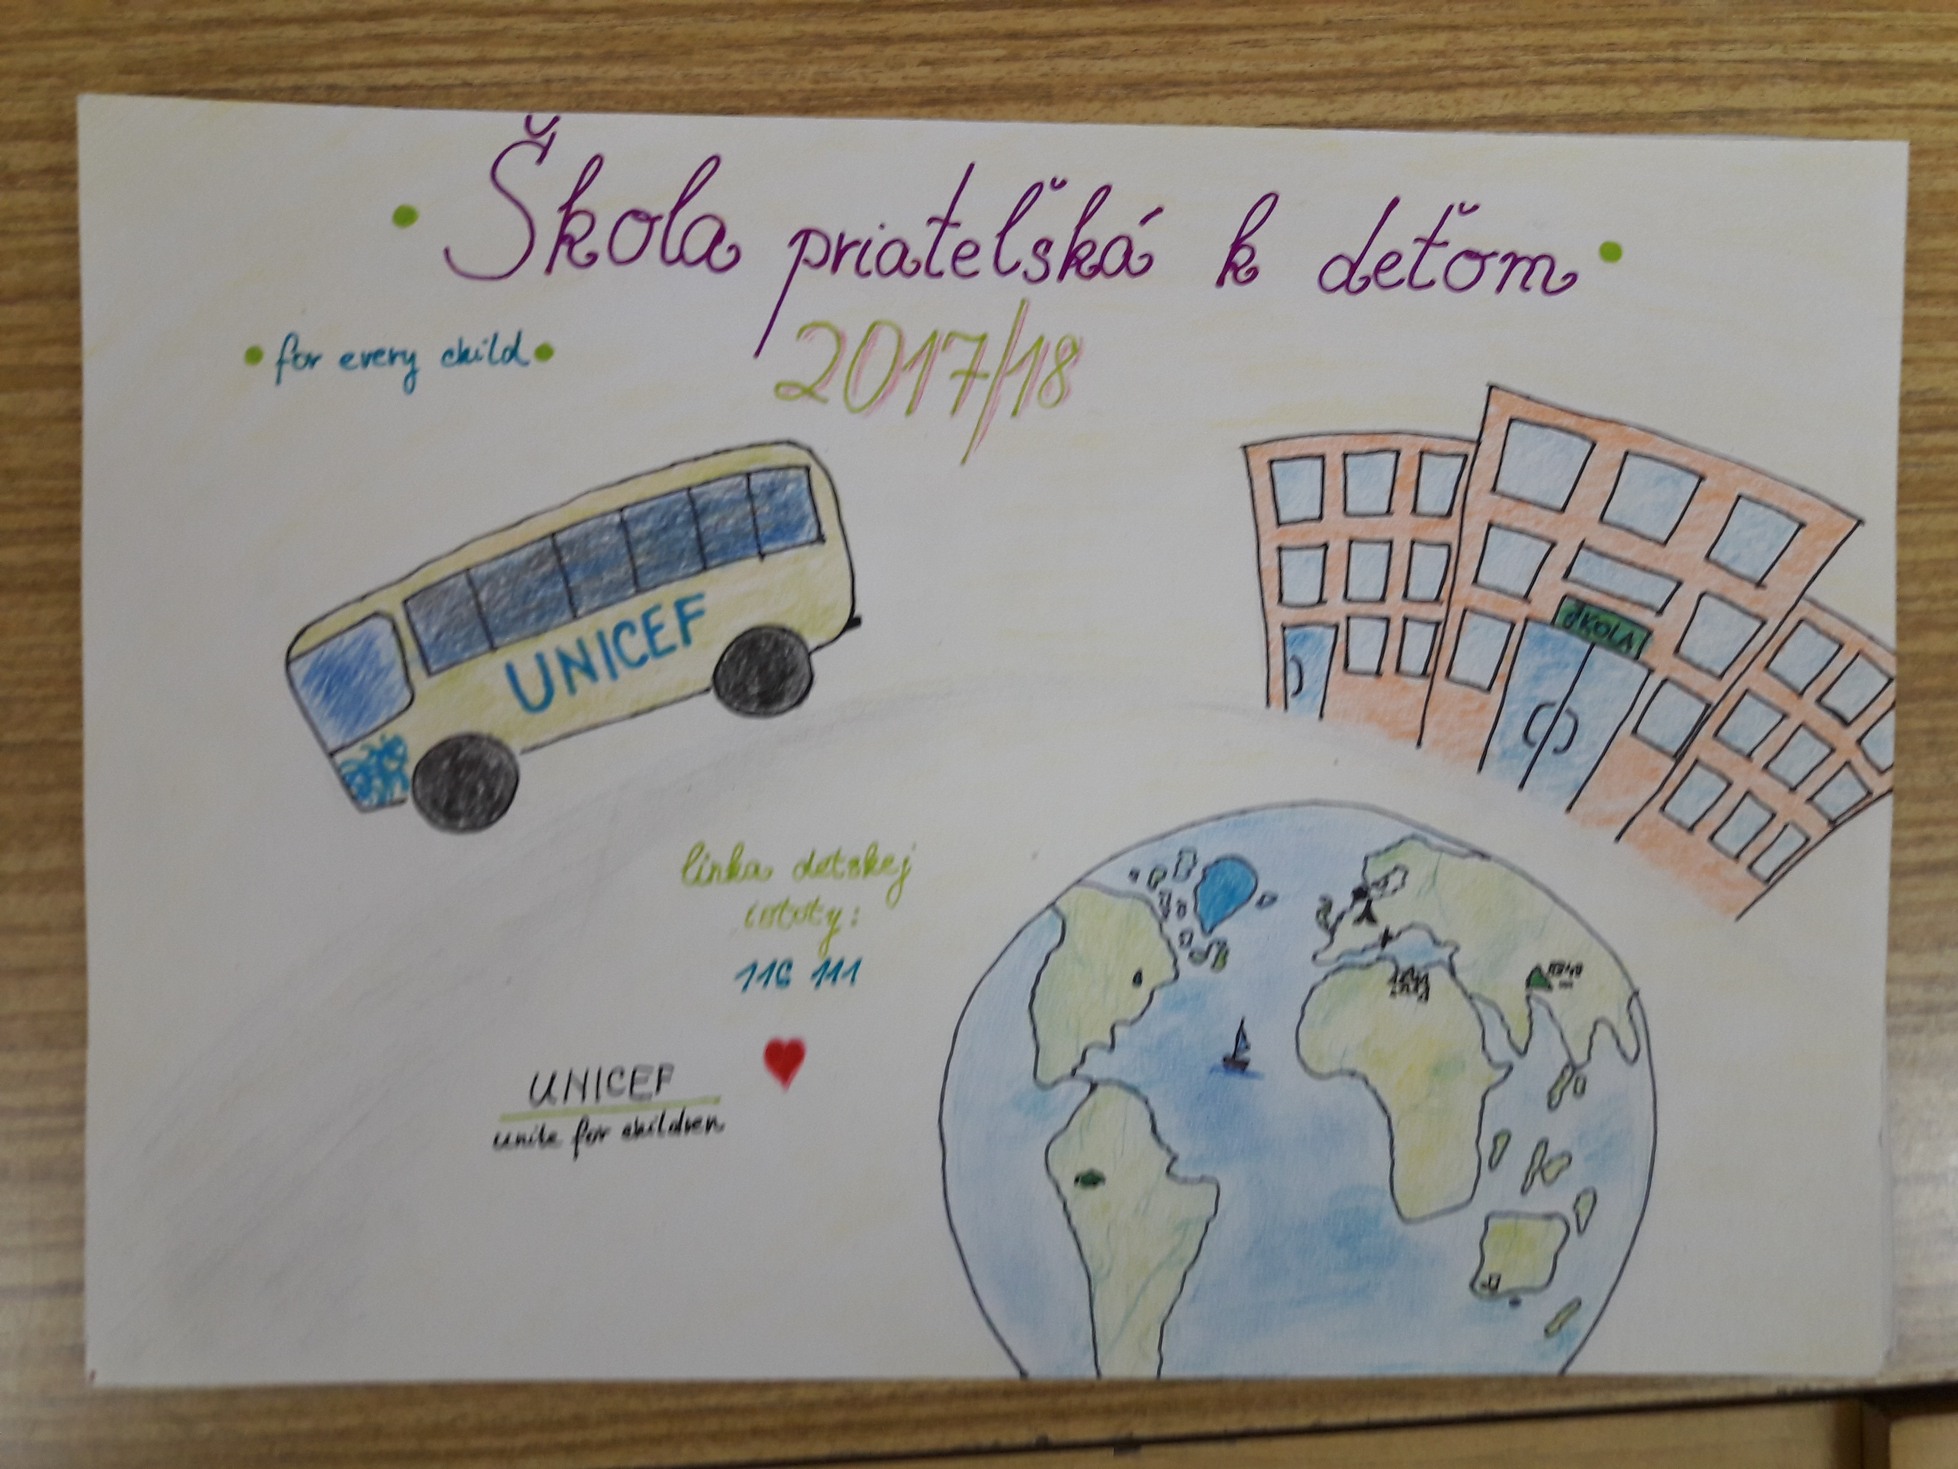 Škola priateľská k deťom
2017/18
for every child
UNICEF
ŠKOLA
linka detskej
istoty:
116 111
UNICEF
unite for children